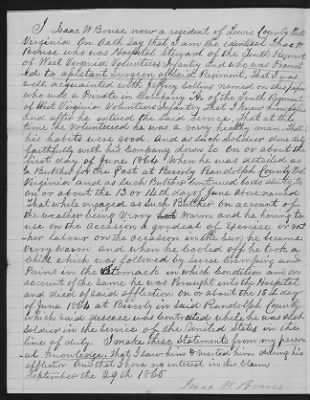 I Isaac W Bouse now a resident of Lewis County West
Virginia On Oath Say that I am the identical Isaac W
Bouse who was Hospital Steward of the Tenth Regiment
of West Virginia Volunteers Infantry and who was Promot
ed to assistant Surgeon of said Regiment, That I was
well acquainted with Collins named on this paper
who was a Private in Company of the Tenth Regiment
of West Virginia Volunteers Infantry, that I knew him before
and after he entered the said Service, That at the
time he Volunteered he was a very healthy man, That
his habits were good. And as such Soldier done duty
faithfully with his Company down to On or about the
first day of June 1864 When he was detailed as
a Butcher for the Post at Beverly Randolph County West
Virginia and as such Butcher Continued to do duty to
on or about the 13 or 14th day of June aforesaid
That while engaged as such Butcher On account of
the weather being Verry warm and he having to
use on the Occasion a great deal of Exercise or
her labour on the Occasion in the he became
Verry warm and when he Cooled off he took a
Chill which was followed by Severe Cramping and
Pains in the Stomack in which Condition and on
account of the Same he was Brought into the Hospital
and died of said affliction on or about the 15th day
of June 1864 at Beverly in said Randolph County
which said disease was Contracted while he was such
Soldier in the Service of the United States in the
line of duty. I make these Statements from my person
al Knowledge. That I saw him & visited him during his
affliction and that I have no interest in this Claim
September the 29th 1865
Isaac W. Bouse